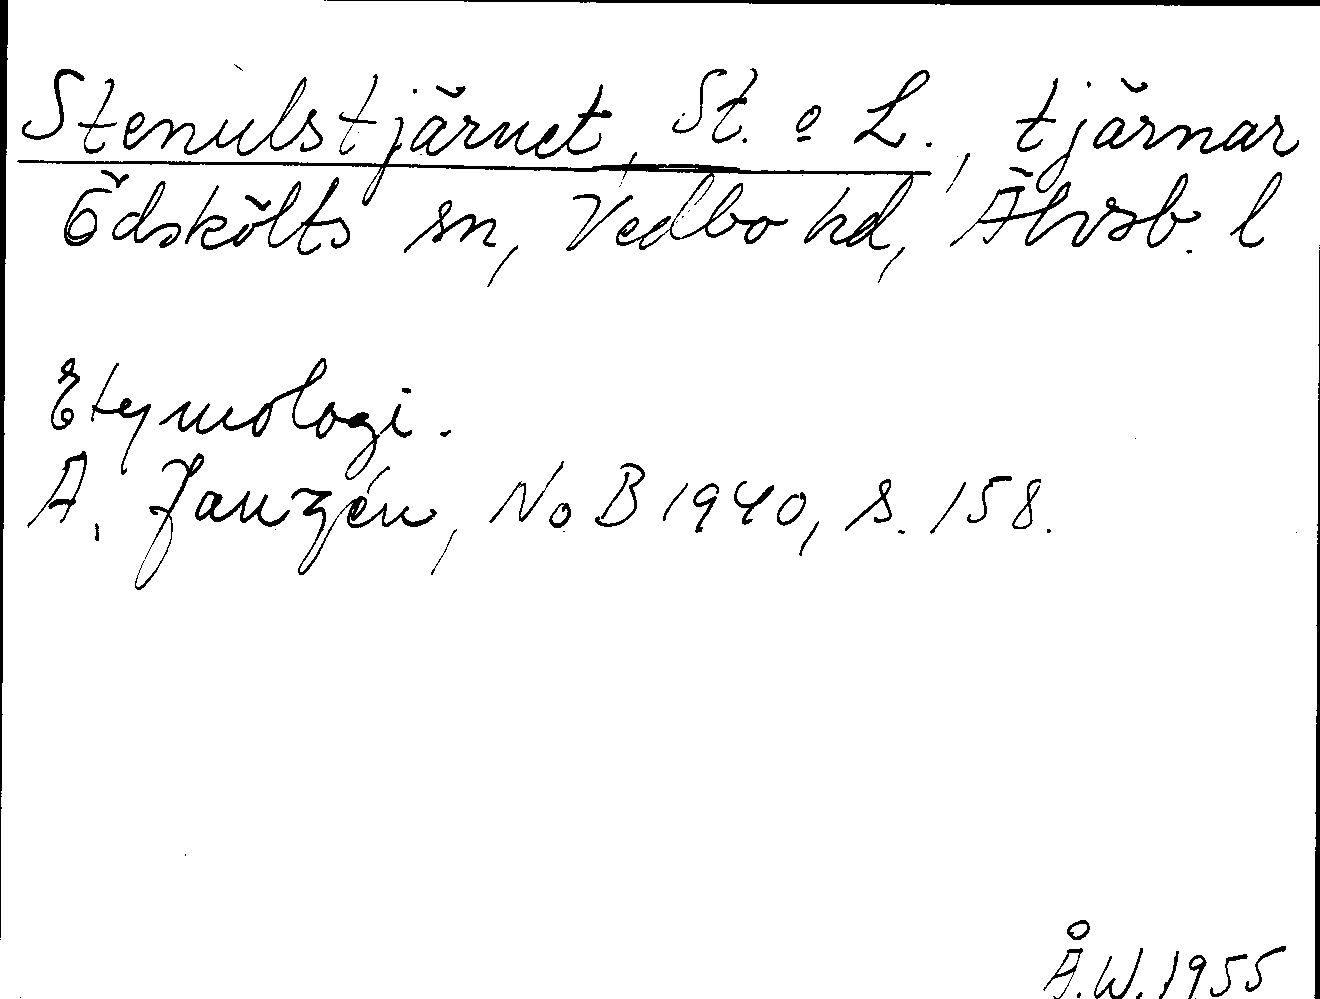 Stenulstjärnet, St. o L., tjärnar
Ödskölts sn, Vedbo hd, Älvsb. l
Etymologi.
A. Janzén, NoB 1940, s. 158.
Å.W. 1955